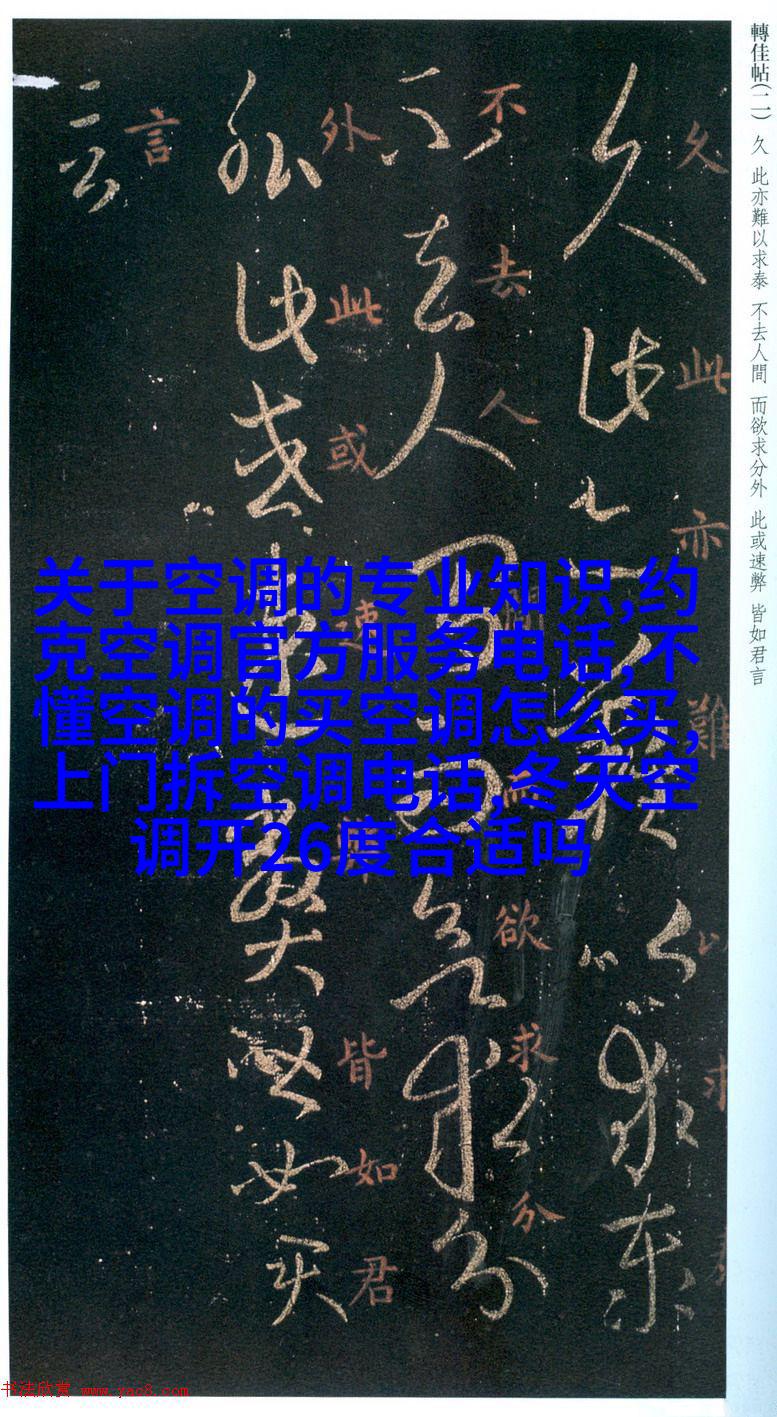 轉佳帖(二) 久 此亦難以求泰 不去人間 而欲求分外 此或速弊 皆如君言
久此亦難以求泰
久此亦難以求
不去人間而欲求分
不去人間而欲求分
外此或速弊皆如君
外此或速弊皆如君
言
言
关于空调的专业知识,约
克空调官方服务电话,不
懂空调的买空调怎么买,
上门拆空调电话,冬天空
调开26度合适吗
书法欣赏 www.yac8.com